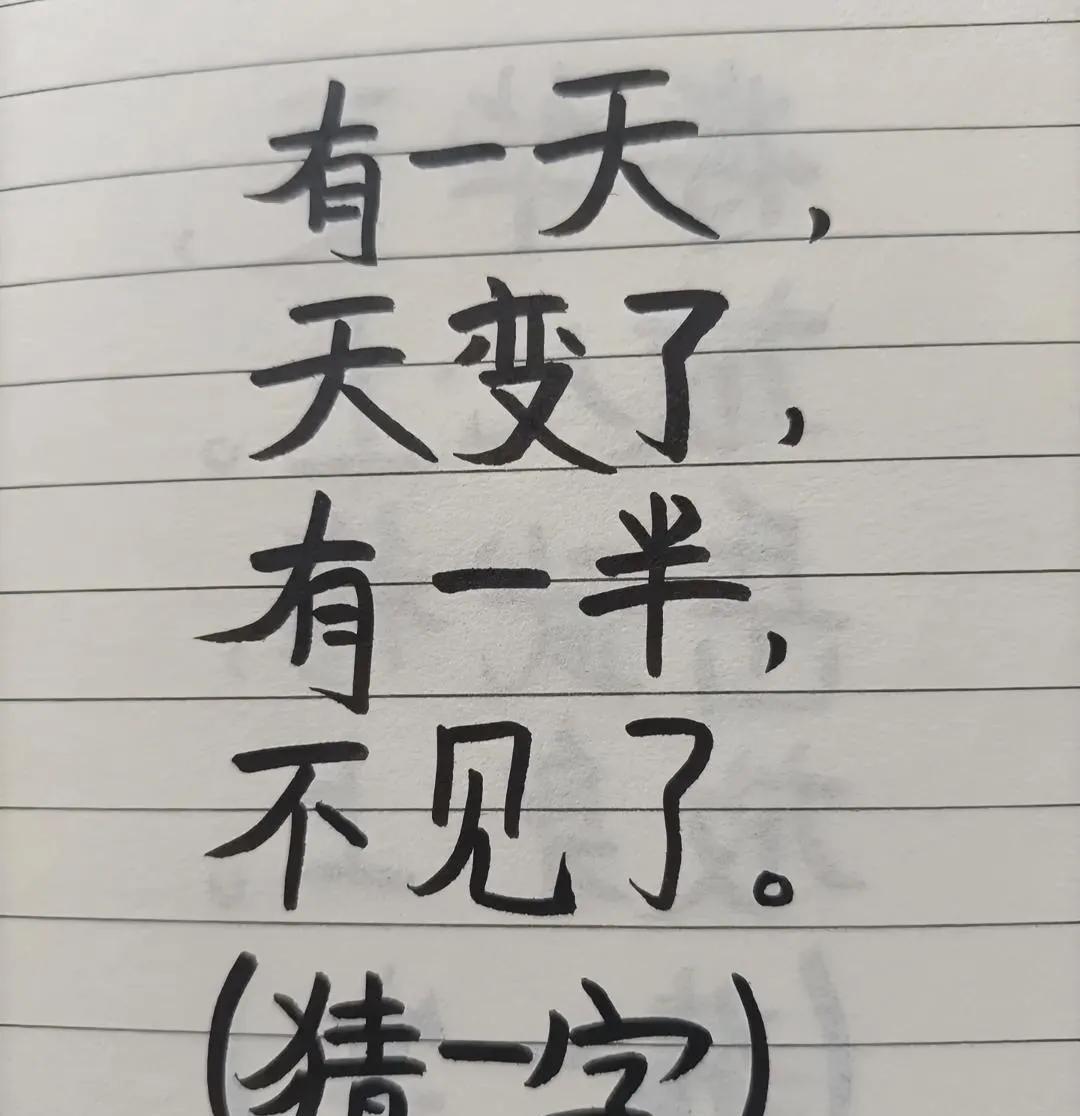 有一天,
天变了,
有一半,
不见了。
(猜一字)